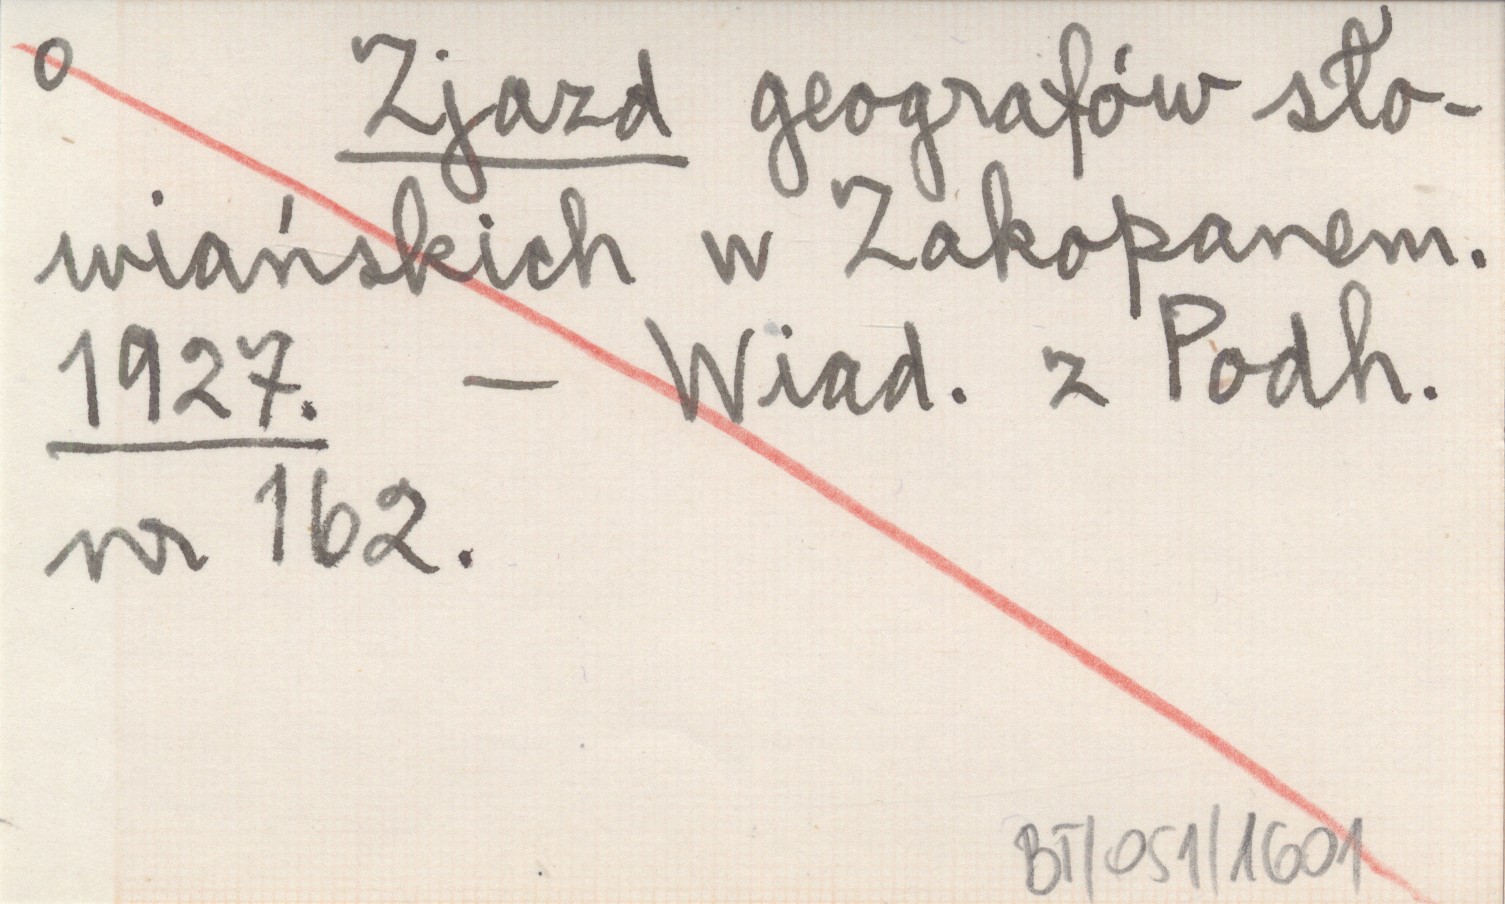 o Zjazd geografów sło-
wiańskich w Zakopanem.
1927. — Wiad. z Podh.
nr 162.
BT/051/1601